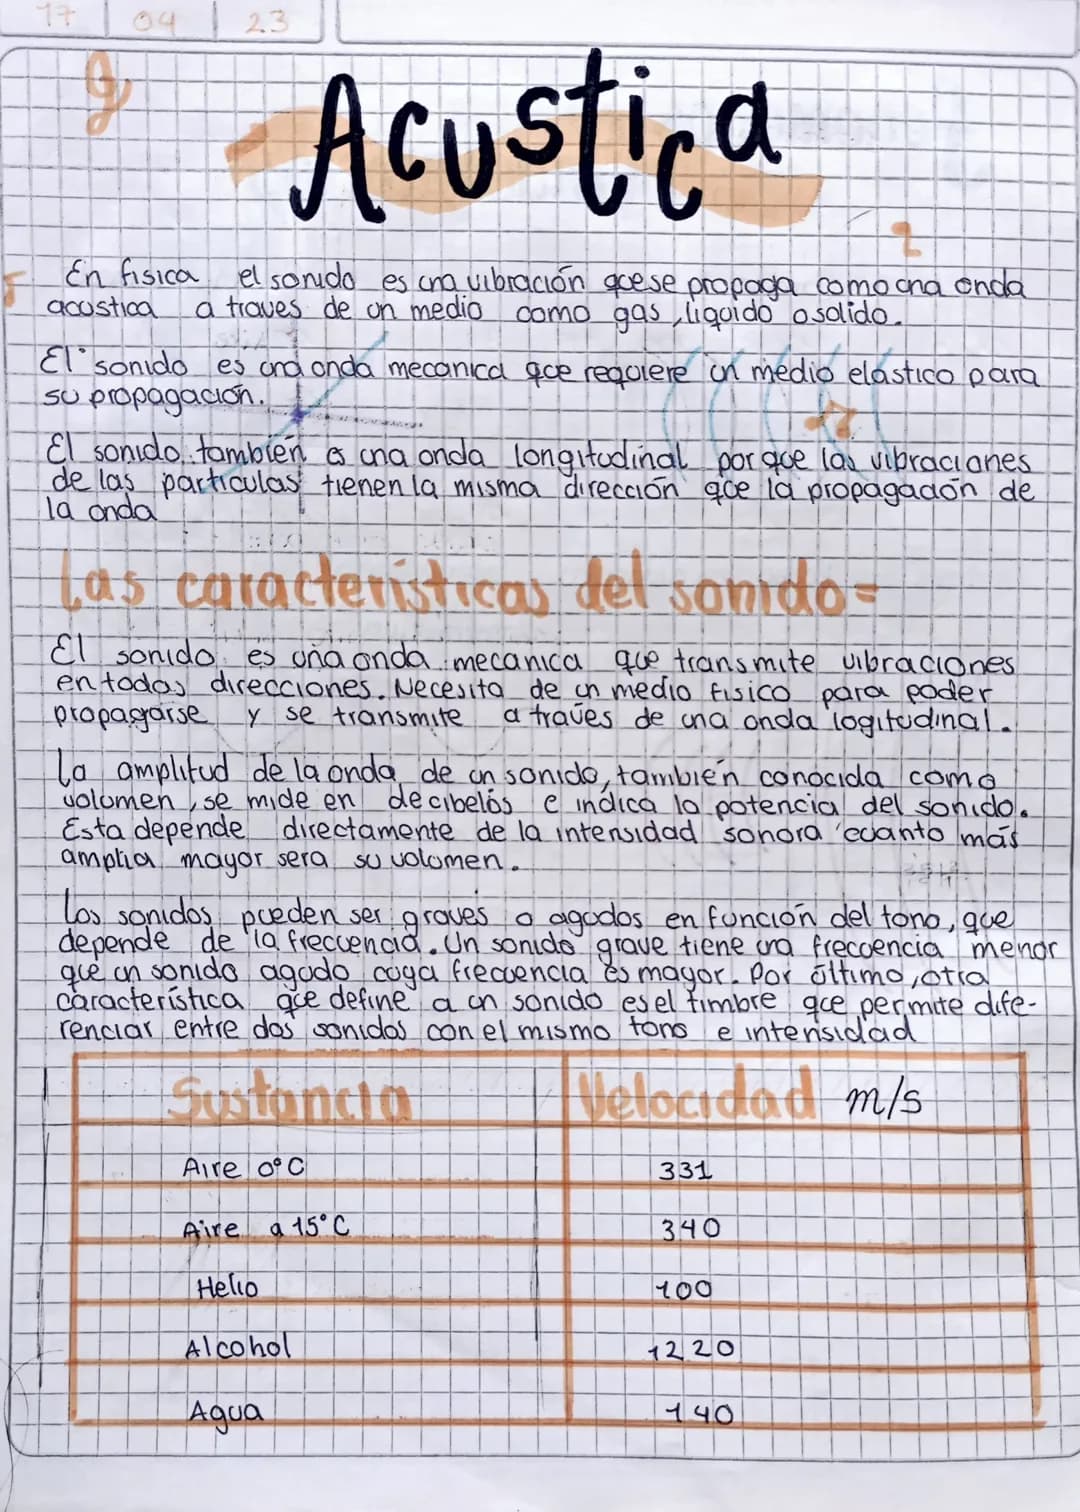 17 04 23
Acustica
En fisica el sonido es una vibración que se propaga como una onda
acustica a traves de un medio como gas, liquido o solido.
El sonido es una onda mecanica que requiere un medio elástico para
su propagación.
El sonido también es una onda longitudinal por que las vibraciones
de las particulas tienen la misma dirección que la propagación de
la onda
Las caracteristicas del sonido=
El sonido es una onda mecanica que transmite vibraciones
en todas direcciones. Necesita de un medio fisico para poder
propagarse y se transmite a través de una onda logitudinal.
La amplitud de la onda de un sonido, también conocida como
volumen, se mide en decibelos e indica la potencia del sonido.
Esta depende directamente de la intensidad sonora cuanto más
amplia mayor sera su volumen.
Los sonidos pueden ser graves o agudos en función del tono, que
depende de la frecuencia. Un sonido grave tiene una frecuencia menor
que un sonido agudo cuya frecuencia es mayor. Por último, otra
característica que define a un sonido es el timbre que permite dife-
renciar entre dos sonidos con el mismo tono e intensidad
Sustancia Velocidad m/s
Aire 0°C 331
Aire a 15°C 340
Helio 100
Alcohol 1220
Agua 140